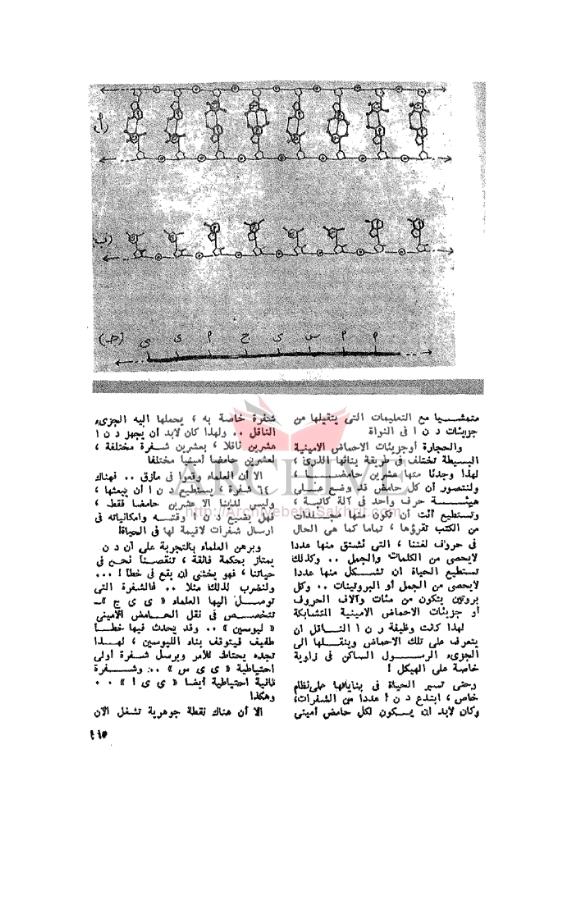 (أ)
(ب)
(جـ) ى ى م ج ى س م م
متمشـــيا مع التعليمات التى يتقبلها من
جزيئات د ن ا فى النواة
والحجارة أوجزيئات الأحماض الأمينية
البسيطة تختلف فى طريقة بنائها الذرى ،
لهذا وجدنا منها عشرين حامضــــا ..
ولنتصور أن كل حامض قد وضع عـــلى
هيئــــة حرف واحد فى آلة كاتبــة ،
وتستطيع أنت أن تكون منها مجـــلدات
من الكتب تقرؤها ، تماما كما هى الحال
فى حروف لغتنا ، التى نشتق منها عددا
لايحصى من الكلمات والجمل .. وكذلك
تستطيع الحياة أن تشــكل منها عددا
لايحصى من الجمل أو البروتينات .. وكل
بروتين يتكون من مئات وآلاف الحروف
أو جزيئات الأحماض الأمينية المتشابكة
لهذا كانت وظيفة ر ن ا النــاقل أن
يتعرف على تلك الأحماض وينقــلها الى
الجزىء الرســـول الساكن فى زاوية
خاصة على الهيكل !
وحتى تسير الحياة فى بناياتها على نظام
خاص ، ابتدع د ن ا عددا من الشفرات،
وكان لابد ان يـــكون لكل حامض أمينى
شفرة خاصة به ، يحملها اليه الجزىء
الناقل .. ولهذا كان لابد ان يجهز د ن ا
عشرين ناقلا ، بعشرين شــفرة مختلفة ،
لعشرين حامضا أمينيا مختلفا
الا أن العلماء وقعوا فى مأزق .. فهناك
٦٤ شفرة ، يستطيع د ن ا أن يبعثها ،
وليس لدينا الا عشرين حامضا فقط ،
فهل يضيع د ن ا وقتــه وامكانياته فى
ارسال شفرات لاقيمة لها فى الحياة!
وبرهن العلماء بالتجربة على أن د ن
يمتاز بحكمة فائقة ، تنقصــنا نحــن فى
حياتنا ، فهو يخشى ان يقع فى خطأ ! ...
ولنضرب لذلك مثلا .. فالشفرة التى
توصــل اليها العلماء « ى ى ج »ـ
تتخصــص فى نقل الحــامض الأمينى
« ليوسين » .. وقد يحدث فيها خطــأ
طفيف فيتوقف بناء الليوسين ، لهــذا
تجده يحتاط للأمر ويرسل شــفرة أولى
احتياطية « ى ى س » .. وشــــفرة
ثانية احتياطية أيضا « ى ى ا » ..
وهكذا
الا أن هناك نقطة جوهرية تشغل الآن
١١٥
ARCHIVE
http://Archivebeta.Sakhrit.com